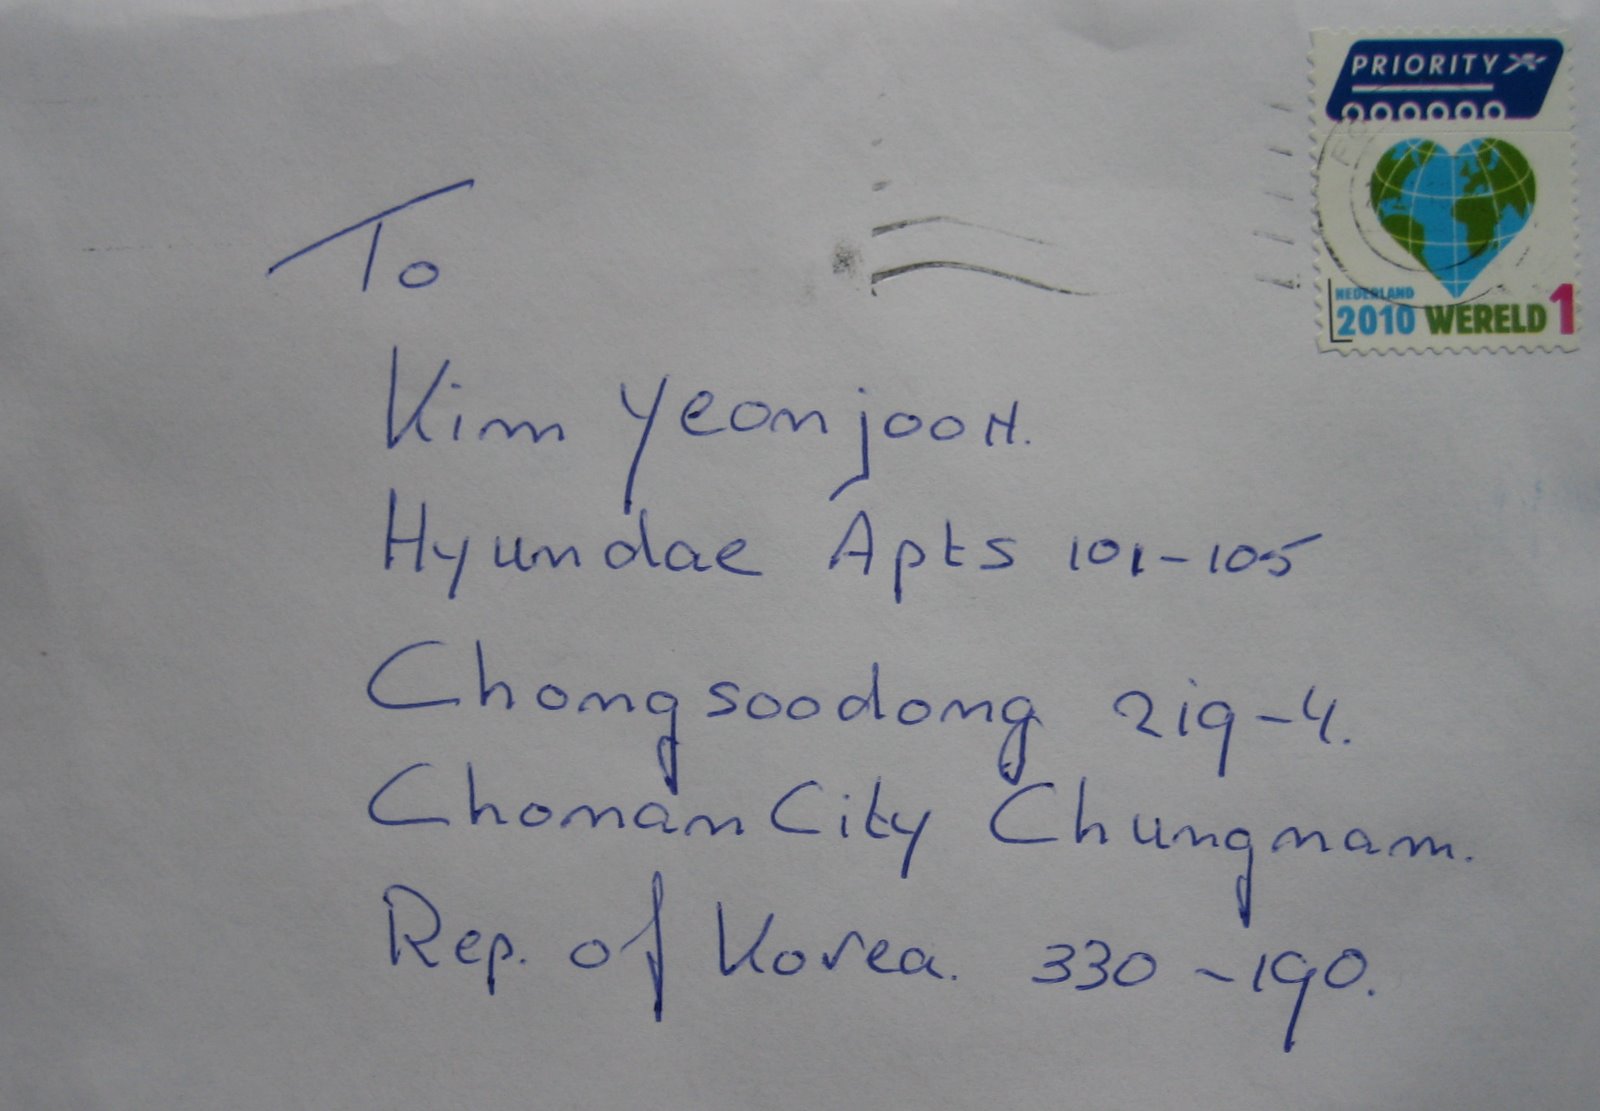 PRIORITY
NEDERLAND
2010 WERELD 1
To
Kim Yeonjoo H.
Hyundae Apts 101-105
Chongsoodong 219-4.
Chonan City Chungnam.
Rep. of Korea. 330-190.